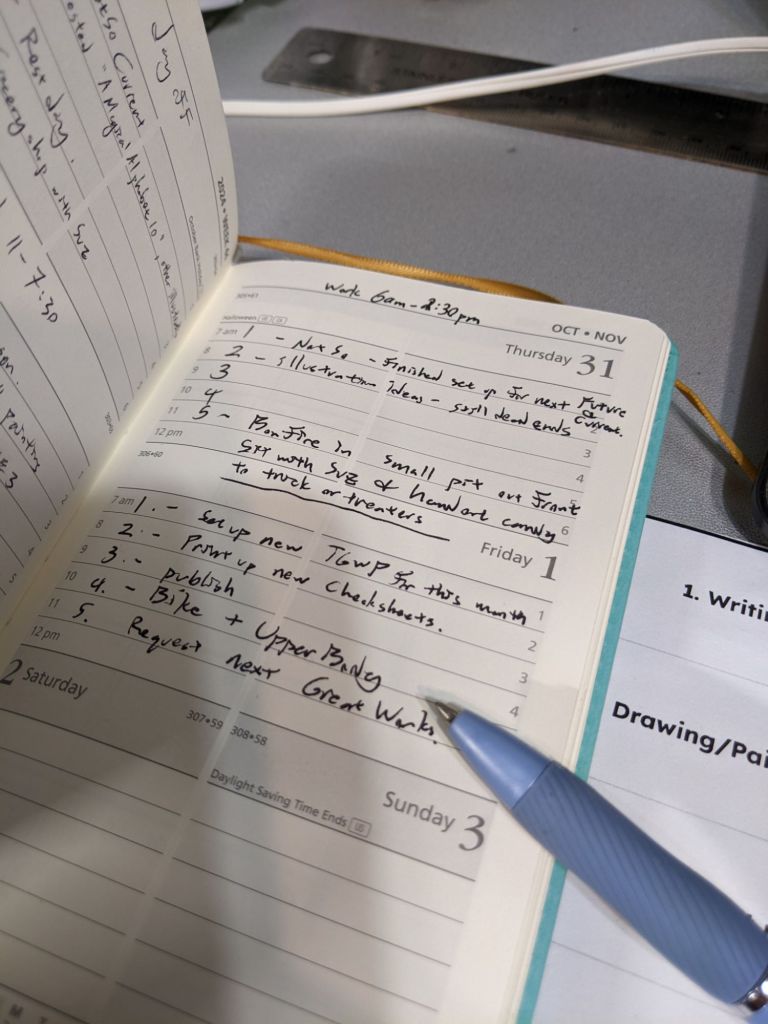 Day off
Not So Current
"A Magical Alphabet 10"
Rest day.
Grocery shop with Suz
11 - 7:30
Painting
2024 • WEEK
Work 6am - 2:30pm
305•61
OCT • NOV
Halloween
Thursday 31
7 am 1 - Not So - Finished set up for next Future Current.
8 2 - Illustration Ideas - still dead ends
9 3
10 4
11 5 - Bonfire in small pit out front
12 pm sit with Suz & handout candy
to trick or treaters
2
3
4
5
6
306•60
Friday 1
7 am 1. - Set up new TGWP for this month
8 2. - Print up new checksheets.
9 3. - publish
10 4. - Bike + Upper Body
11 5. Request next Great Works.
12 pm
1
2
3
4
2 Saturday
307•59
308•58
Daylight Saving Time Ends US
Sunday 3
M T
1. Writin
Drawing/Pai